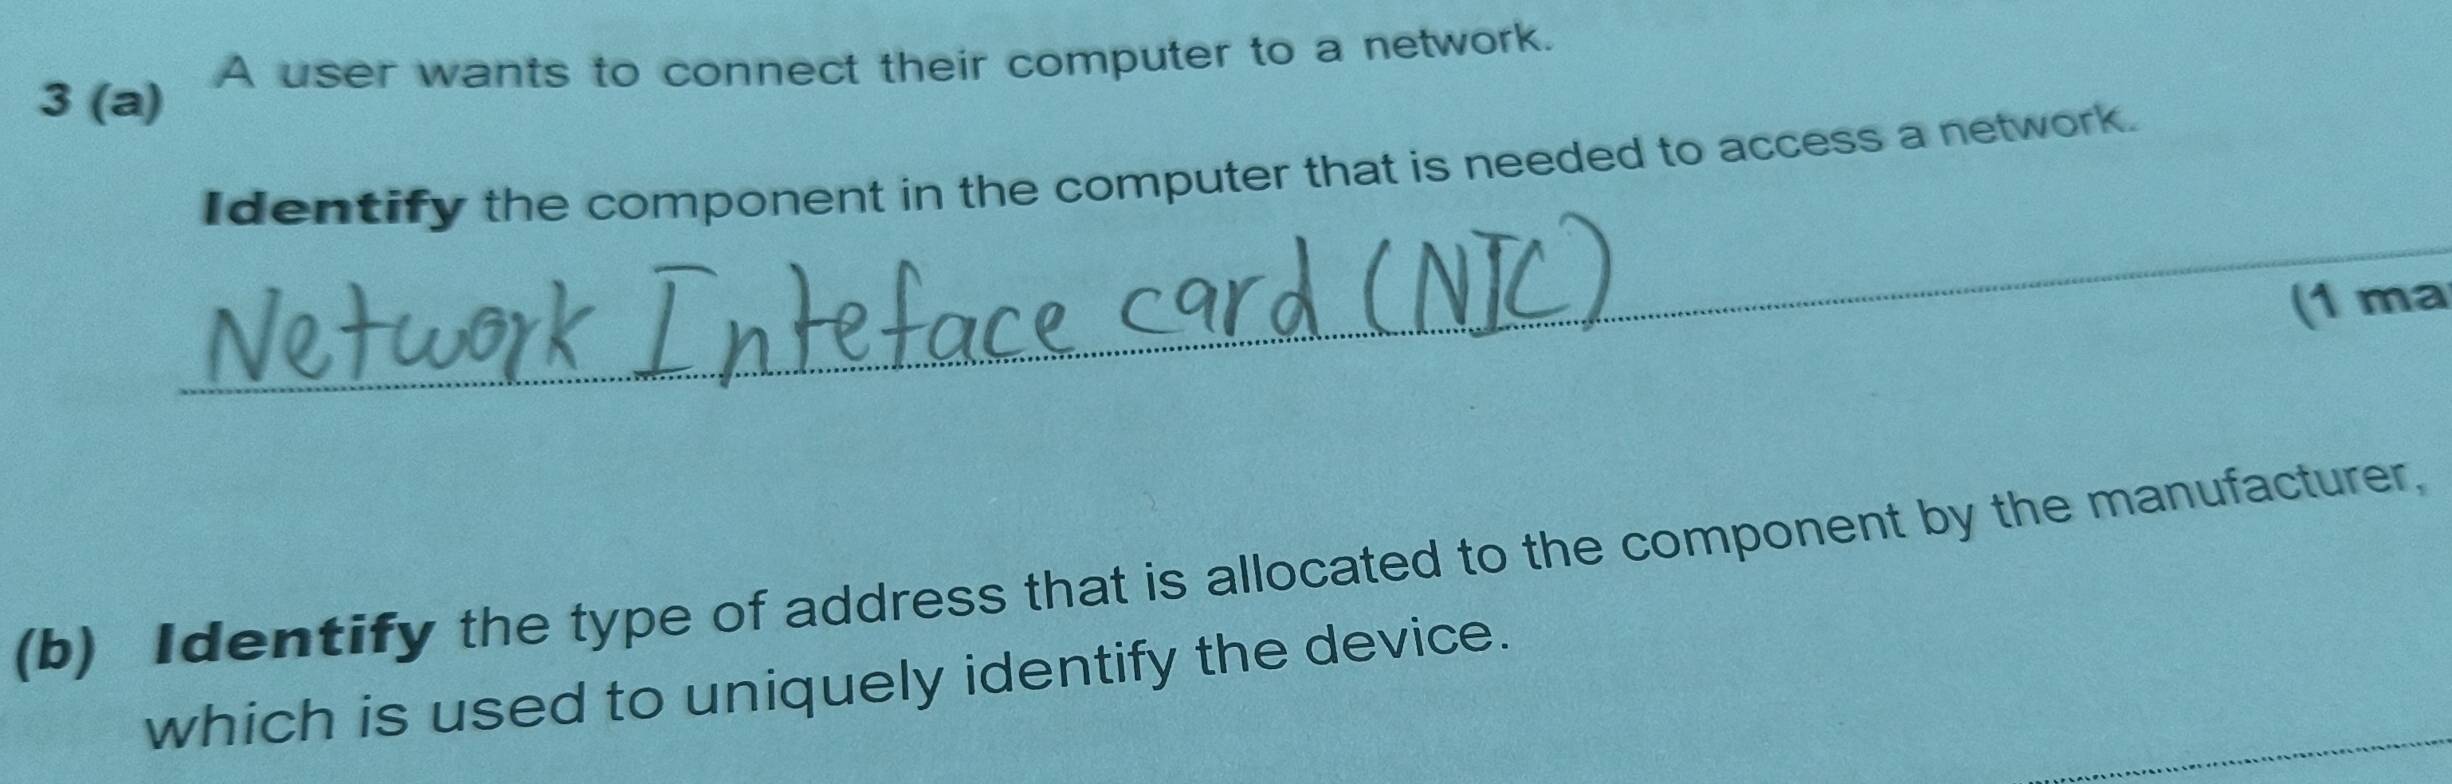 3 (a) A user wants to connect their computer to a network.
Identify the component in the computer that is needed to access a network.
Network Inteface card (NIC)
(1 ma
(b) Identify the type of address that is allocated to the component by the manufacturer,
which is used to uniquely identify the device.